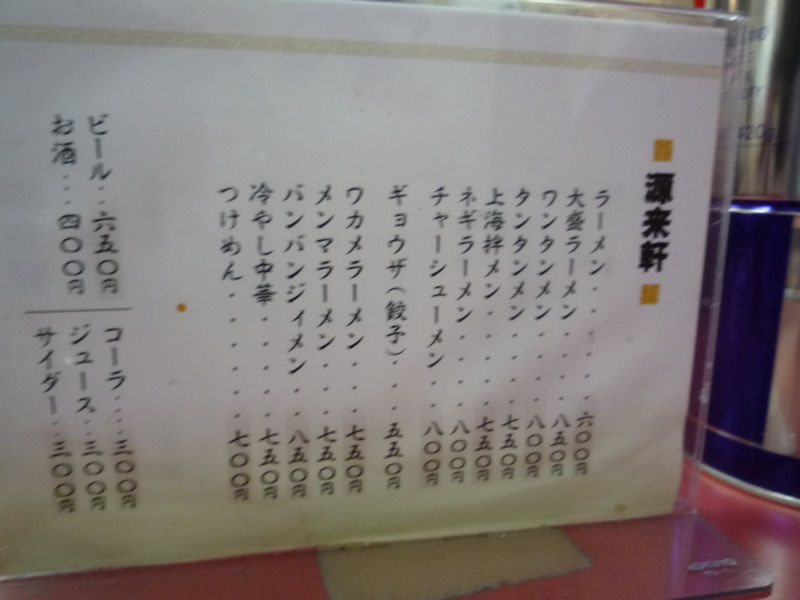 源来軒
ラーメン・・・・・・六〇〇円
大盛ラーメン・・・・八五〇円
ワンタンメン・・・・八〇〇円
タンタンメン・・・・七五〇円
上海拌メン・・・・・七五〇円
ネギラーメン・・・・八〇〇円
チャーシューメン・・八〇〇円
ギョウザ(餃子)・・・五五〇円
ワカメラーメン・・・七五〇円
メンマラーメン・・・七五〇円
バンバンジィメン・・八五〇円
冷やし中華・・・・・七五〇円
つけめん・・・・・・七〇〇円
ビール・・六五〇円
お酒・・・四〇〇円
コーラ・・・・三〇〇円
ジュース・・三〇〇円
サイダー・・三〇〇円
420g